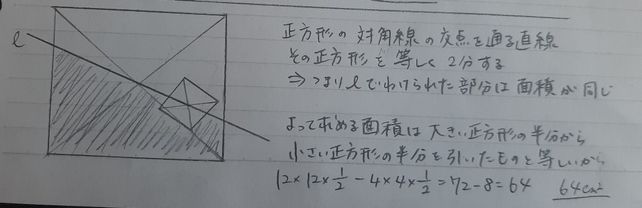 ℓ
正方形の対角線の交点を通る直線
その正方形を等しく2分する
⇒つまりℓでわけられた部分は面積が同じ
よって求める面積は大きい正方形の半分から
小さい正方形の半分を引いたものと等しいから
12×12×1/2-4×4×1/2=72-8=64 64cm²